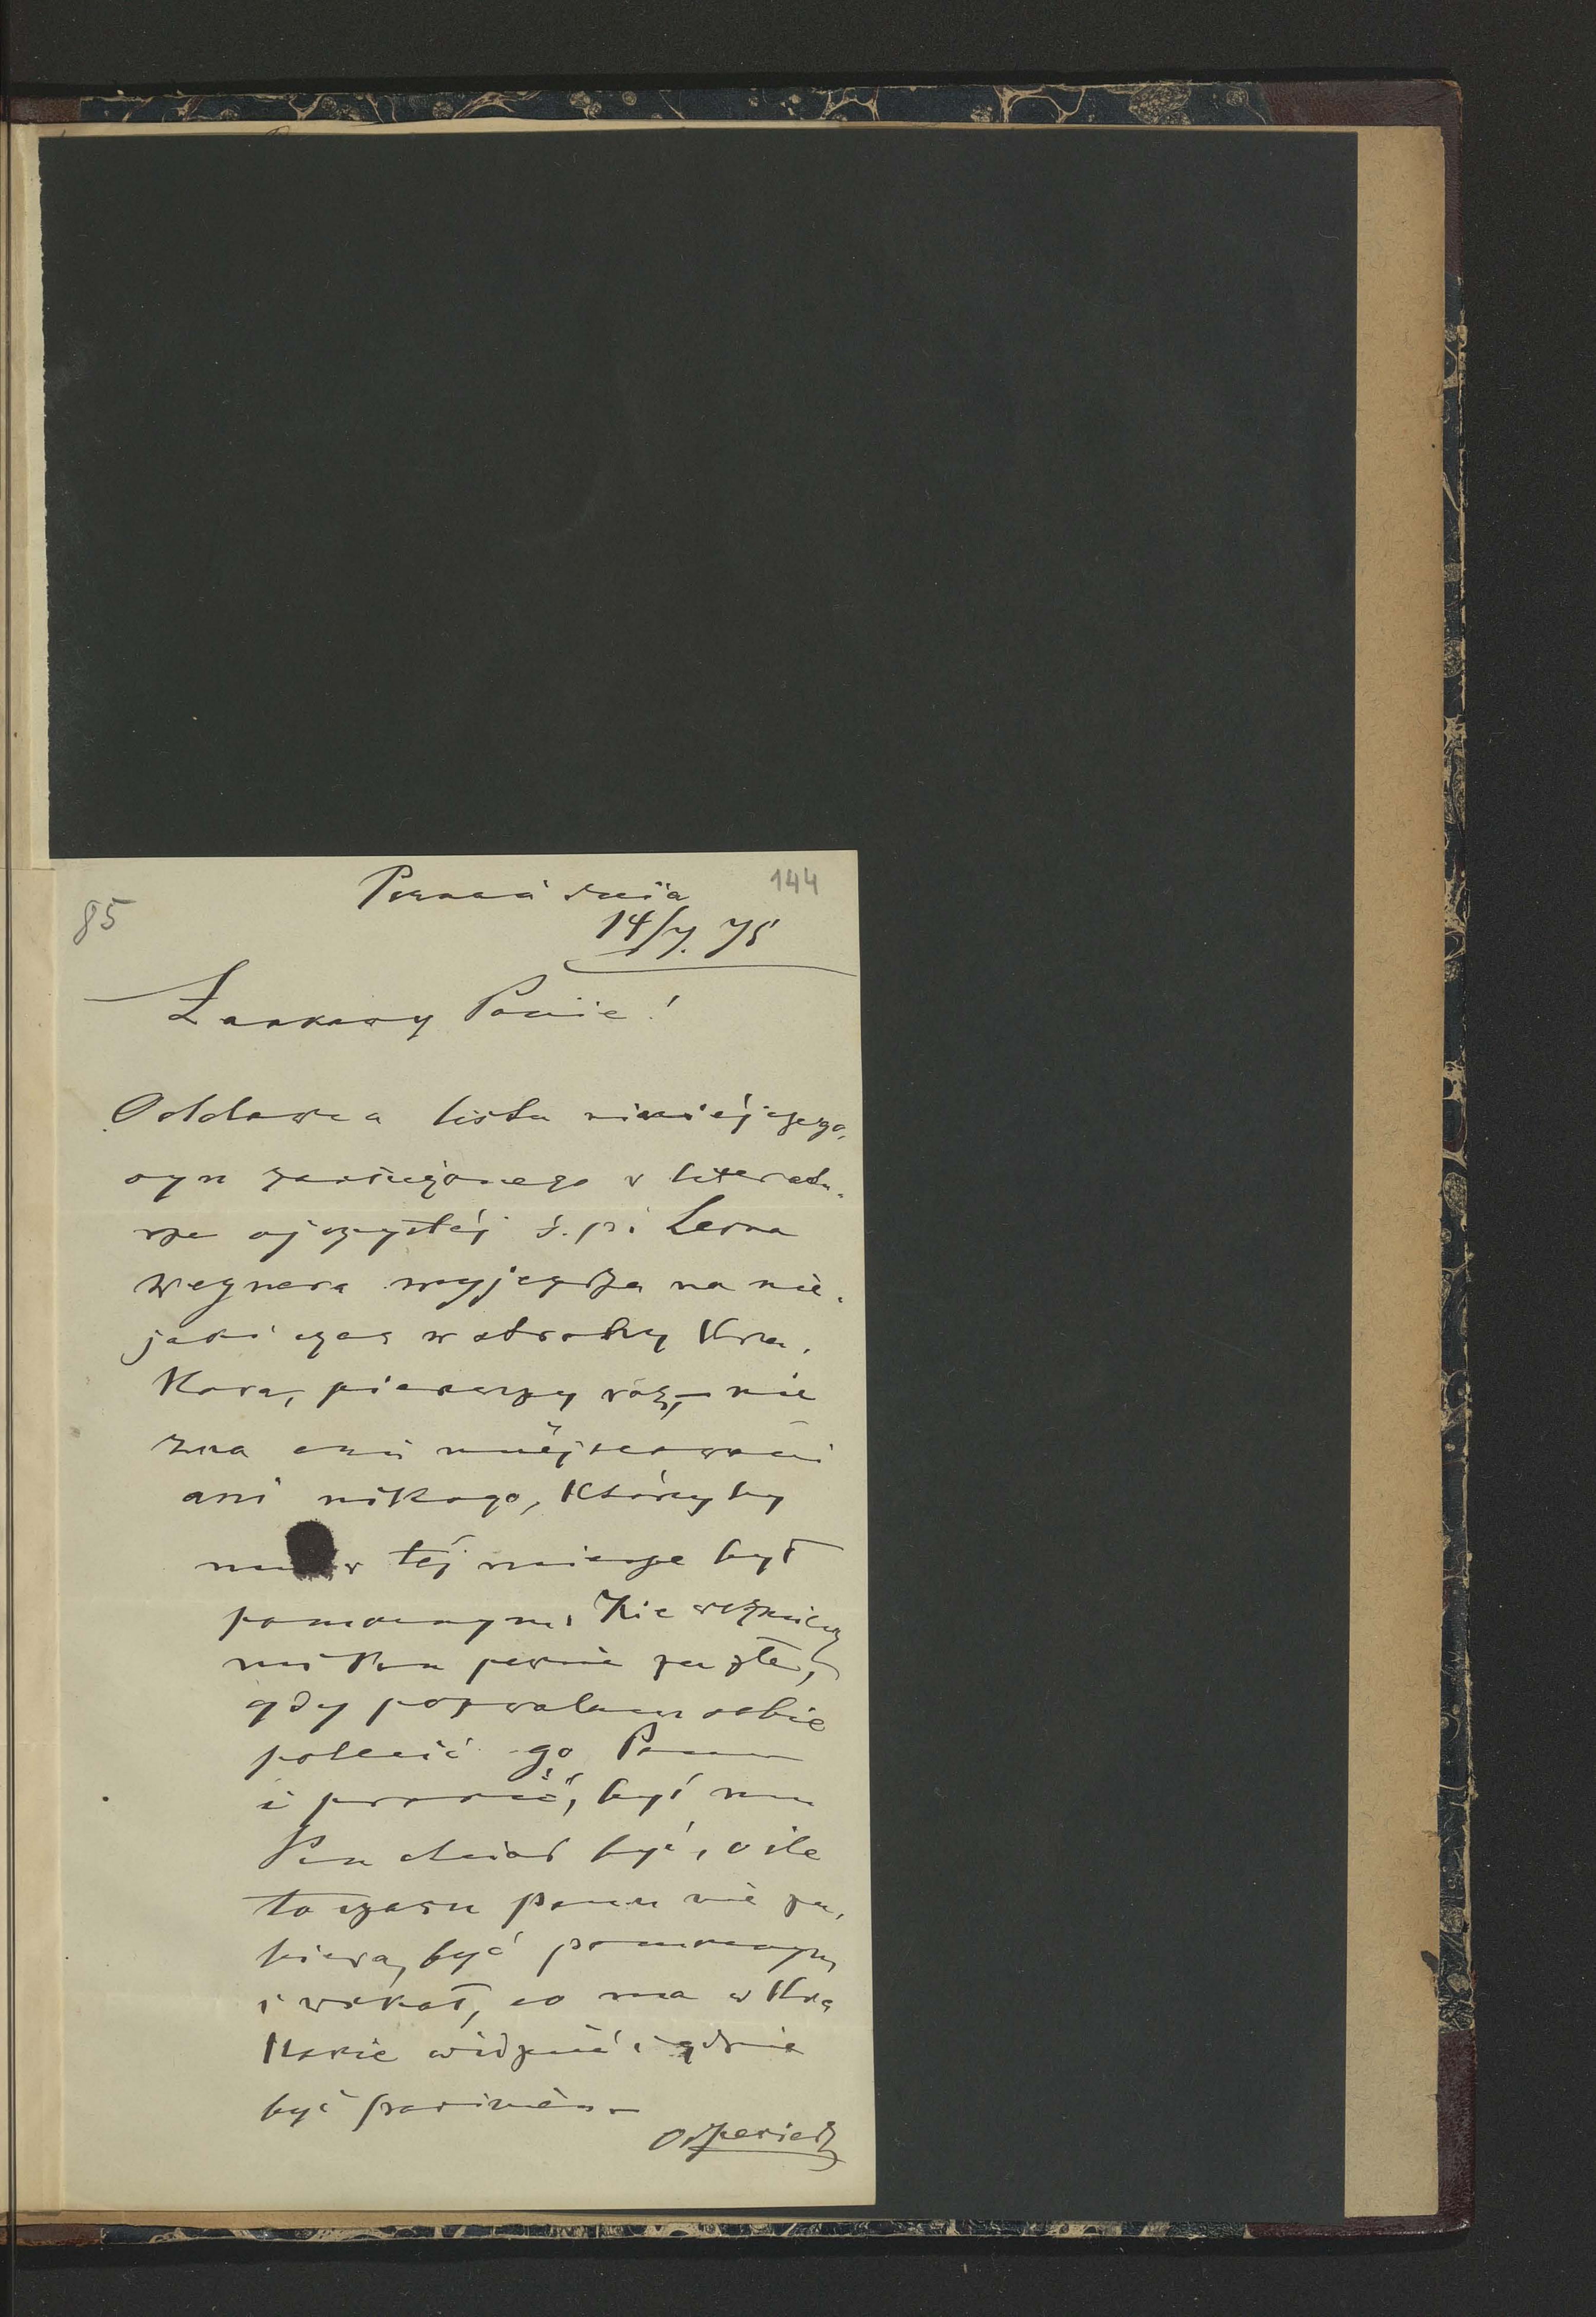 144
85
Poznań dnia
14/7. 75
Łaskawy Panie!
Oddawca listu niniéjszego,
syn zasłużonego w literatu-
rze ojczystéj ś. p. Leona
Wegnera wyjeżdża na nie-
jaki czas w okolicy Kra-
kowa, pierwszy raz, nie
zna ani miéjscowości
ani nikogo, któryby
mu w téj mierze był
pomocnym. Nie weźmiesz
mi Pan pewnie za złe,
gdy pozwalam sobie
polecić go Panu
i prosić, byś mu
Pan chciał być, o ile
to czasu Panu nie za-
biera, być pomocnym
i wskazał, co ma w Kra
kowie widzieć i gdzie
być powinien.